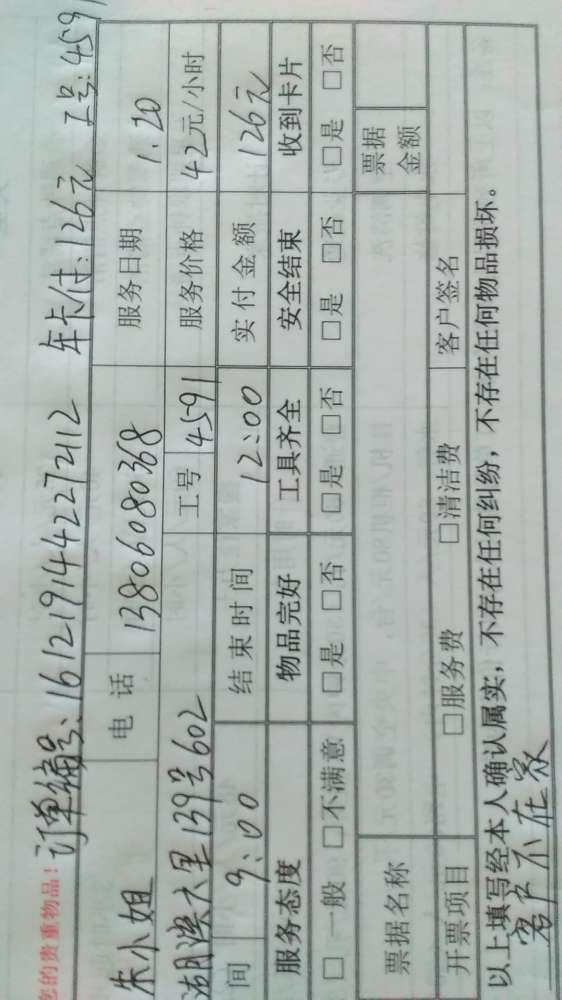 您的贵重物品! 订单编号:1612191442272112 年卡付:126元 工号:4591
朱小姐 电话 13806080368 服务日期 1.20
湖滨六里139号602 工号 4591 服务价格 42元/小时
间 9:00 结束时间 12:00 实付金额 126元
服务态度 物品完好 工具齐全 安全结束 收到卡片
□ 一般 □不满意 □是 □否 □是 □否 □是 □否 □是 □否
票据名称 票据金额
开票项目 □服务费 □清洁费 客户签名
以上填写经本人确认属实,不存在任何纠纷,不存在任何物品损坏。
客户不在家